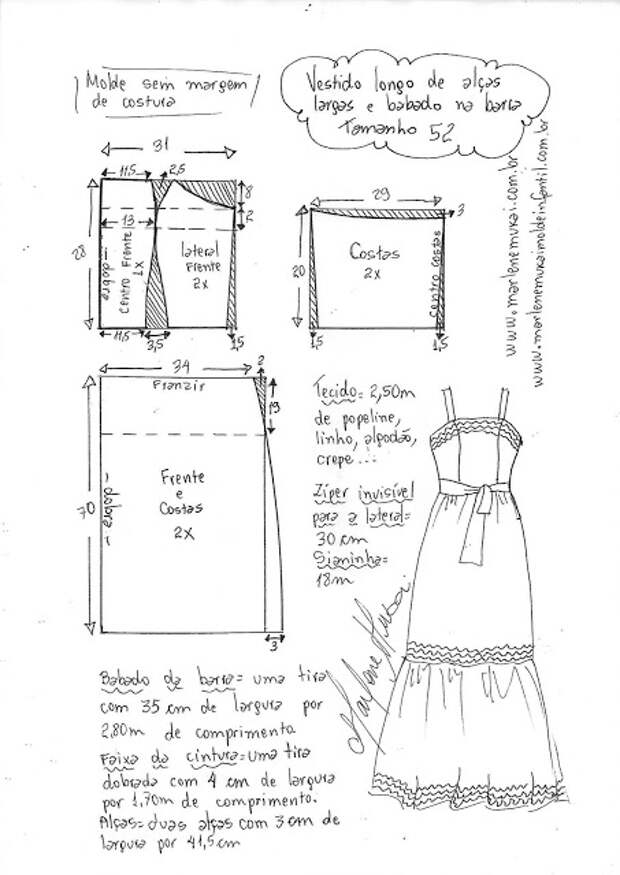 Molde sem margem
de costura
Vestido longo de alças
largas e babado na barra
Tamanho 52
31
11,5
2,5
8
2
13
28
dobra
Centro Frente
1x
lateral
Frente
2x
11,5
3,5
1,5
29
3
20
Costas
2x
centro costas
1,5
1,5
www.marlenemukai.com.br
www.marlenemukaimoldeinfantil.com.br
34
2
Franzir
19
70
- dobra -
Frente
e
Costas
2x
3
Tecido= 2,50m
de popeline,
linho, algodão,
crepe...
Zíper invisível
para a lateral=
30 cm
Sianinha=
18m
Marlene Mukai
Babado da barra= uma tira
com 35 cm de largura por
2,80m de comprimento
Faixa da cintura=uma tira
dobrada com 4 cm de largura
por 1,70m de comprimento.
Alças=duas alças com 3 cm de
largura por 41,5cm